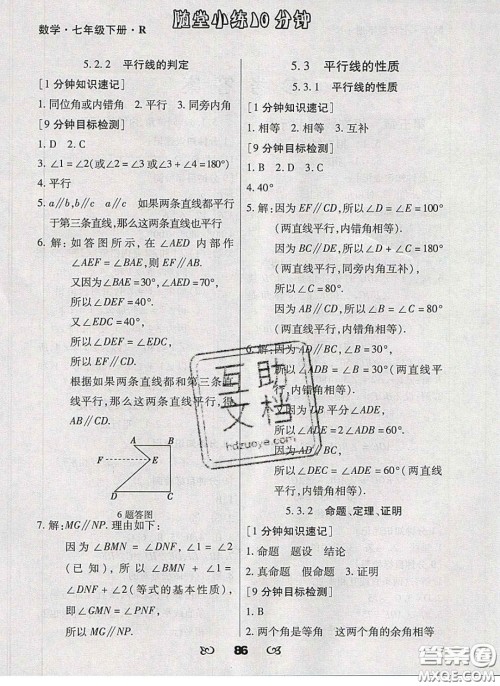 数学·七年级下册·R
随堂小练10分钟
5.2.2 平行线的判定
[1分钟知识速记]
1. 同位角或内错角 2. 平行 3. 同旁内角
[9分钟目标检测]
1. D 2. C
3. ∠1=∠2(或∠2=∠3或∠3+∠4=180°)
4. 平行
5. a∥b,b∥c a∥c 如果两条直线都平行
于第三条直线,那么这两条直线也平行
6. 解:如答图所示,在∠AED内部作
∠AEF=∠BAE,则EF∥AB.
又因为∠BAE=30°,∠AED=70°,
所以∠DEF=40°.
又∠EDC=40°,
所以∠DEF=∠EDC,
所以EF∥CD.
根据如果两条直线都和第三条直
线平行,那么这两条直线平行,得
AB∥CD.
A B
F E
D C
6题答图
7. 解:MG∥NP. 理由如下:
因为∠BMN=∠DNF,∠1=∠2
(已知),所以∠BMN+∠1=
∠DNF+∠2(等式的基本性质),
即∠GMN=∠PNF,
所以MG∥NP.
5.3 平行线的性质
5.3.1 平行线的性质
[1分钟知识速记]
1. 相等 2. 相等 3. 互补
[9分钟目标检测]
1. B 2. D 3. C
4. 40°
5. 解:因为EF∥CD,所以∠D=∠E=100°
(两直线平行,内错角相等).
因为EF∥CD,所以∠D+∠C=180°
(两直线平行,同旁内角互补),
所以∠C=80°.
因为AB∥CD,所以∠B=∠C=80°
(两直线平行,内错角相等).
6. 解:因为AD∥BC,∠B=30°,
所以∠ADB=∠B=30°(两直线平
行,内错角相等).
又因为DB平分∠ADE,
所以∠ADE=2∠ADB=60°.
因为AD∥BC,
所以∠DEC=∠ADE=60°(两直线
平行,内错角相等).
5.3.2 命题、定理、证明
[1分钟知识速记]
1. 命题 题设 结论
2. 真命题 假命题 3. 证明
[9分钟目标检测]
1. B
2. 两个角是等角 这两个角的余角相等
互助
文档
hdzuoye.com
86
答案圈
MXQE.COM